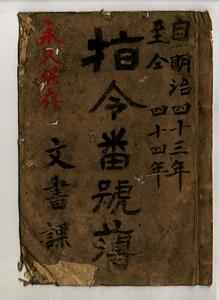 自明治四十三年
至仝 四十四年
指令番號簿
文書課
永久保存